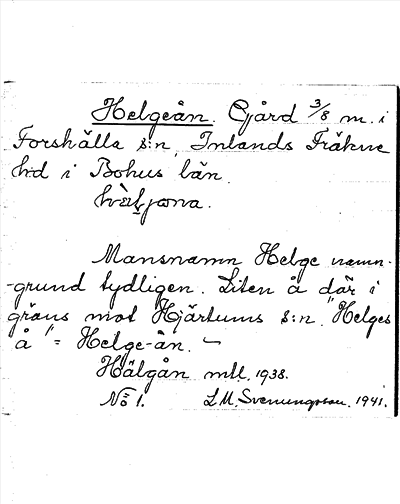 Helgeån. Gård 3/8 m. i
Forshälla s:n, Inlands Fräkne
h:d i Bohus län.
Mansnamn Helge namn-
-grund tydligen. Liten å där i
gräns mot Hjärtums s:n. "Helges
å" = Helge-ån. –
Hälgån mtl. 1938.
No 1. L.M. Svenungsson. 1941.